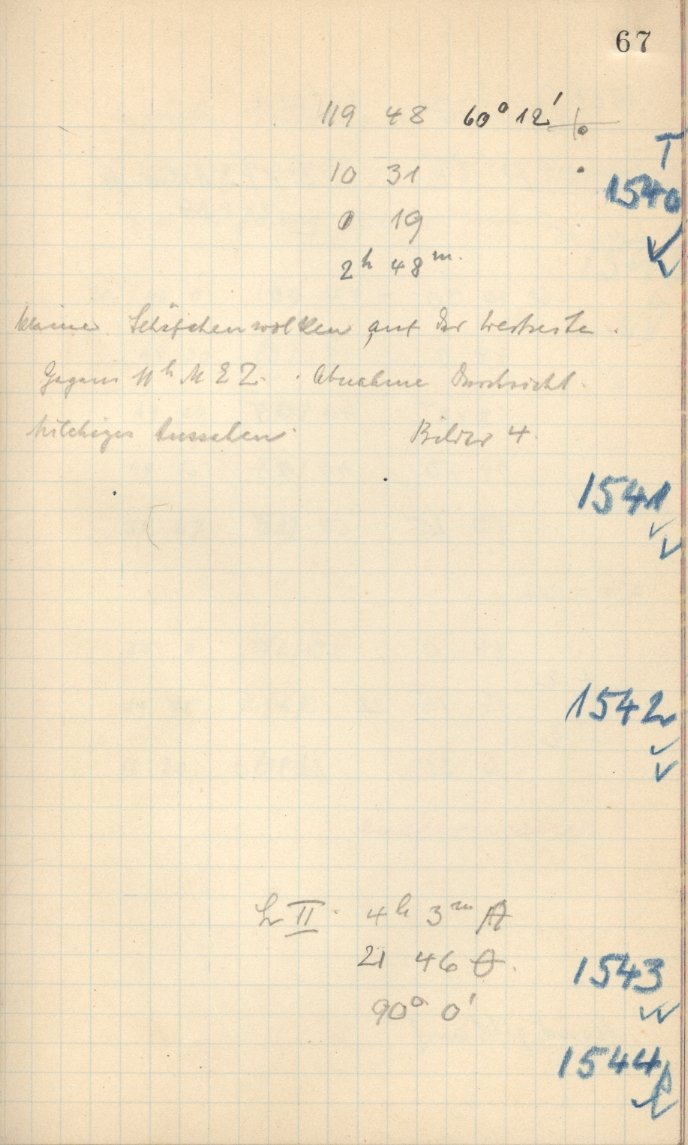 67
119 48 60° 12'
T
1540
10 31
0 19
2h 48m.
kleine Schäfchenwolken auf der Westseite.
Gegen 11h M E Z. Abnahme Durchsicht.
Milchiges Aussehen. Bilder 4.
1541
1542
II. 4h 3m
21 46
1543
90° 0'
1544